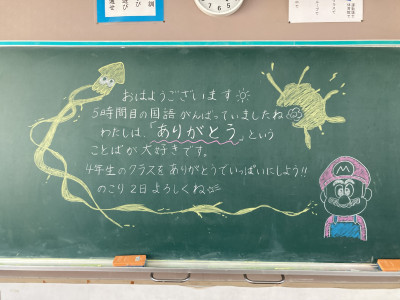 おはようございます
5時間目の国語がんばっていましたね
わたしは、「ありがとう」という
ことばが大好きです。
4年生のクラスをありがとうでいっぱいにしよう!!
のこり2日よろしくね
M